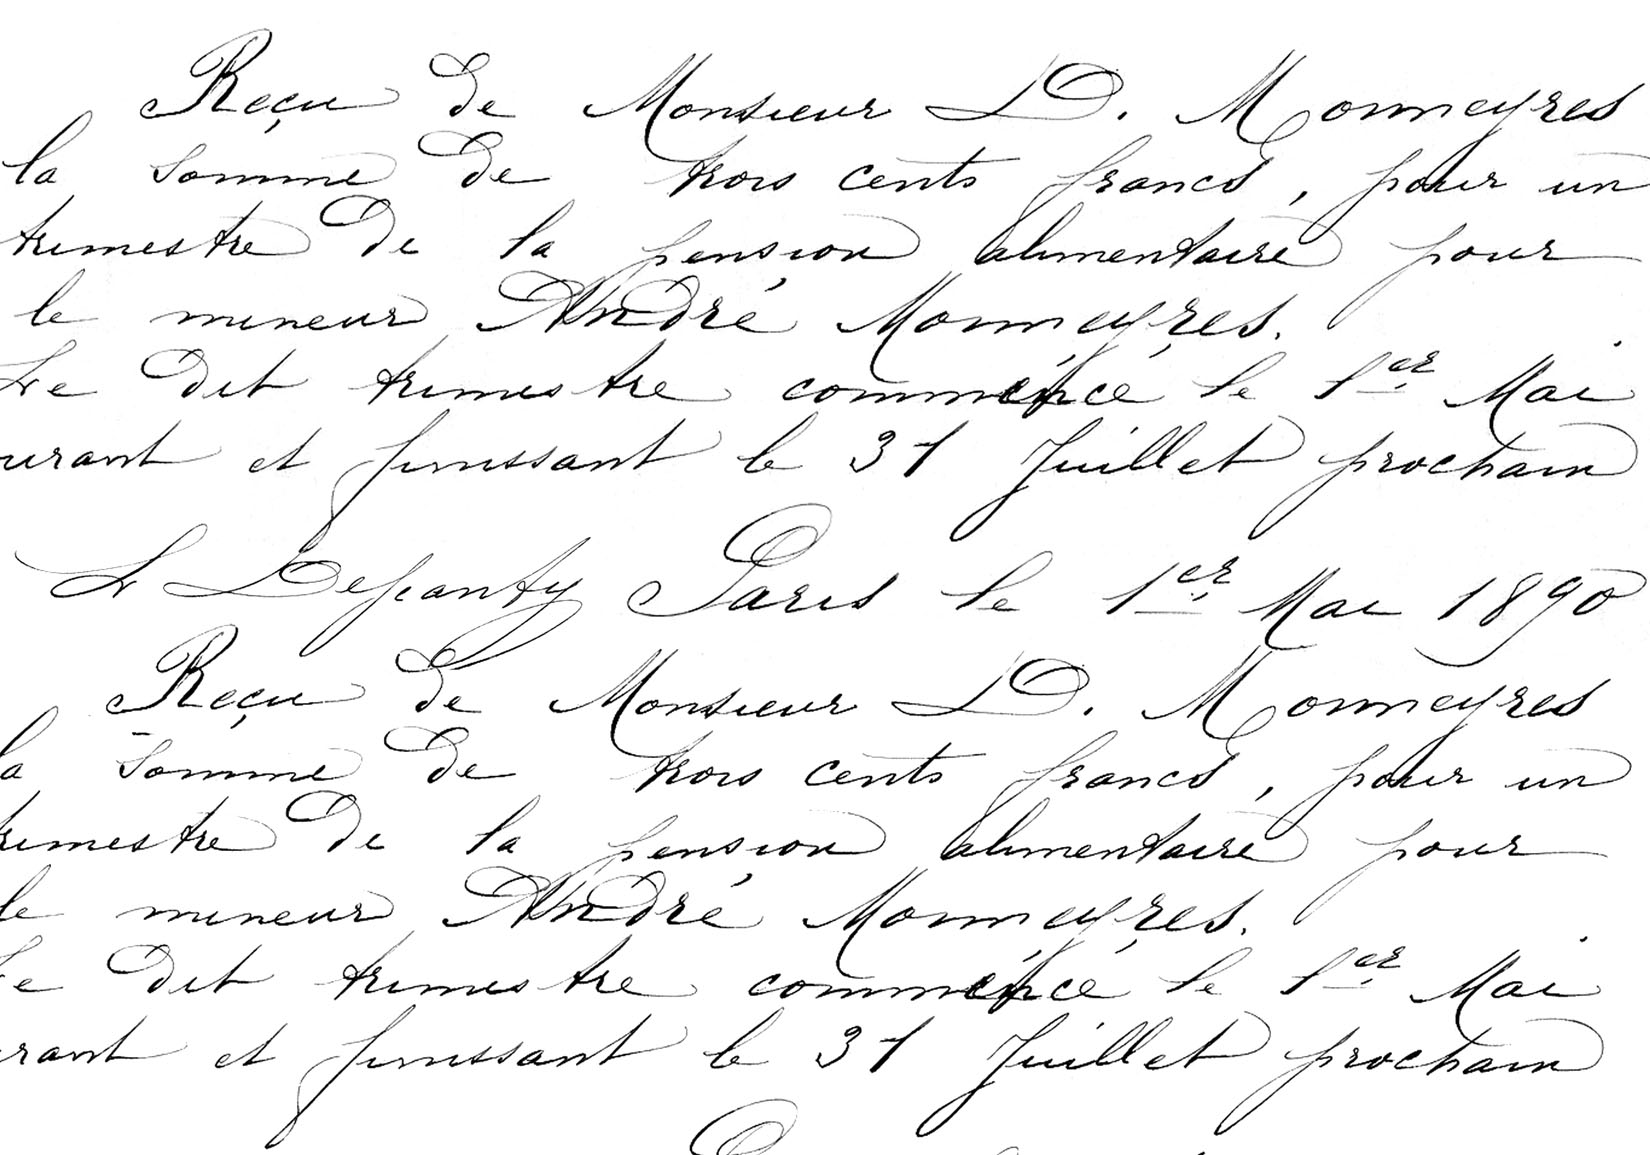 Reçu de Monsieur D. Monneyres
la Somme de trois cents francs, pour un
trimestre de la pension alimentaire pour
le mineur André Monneyres.
Le dit trimestre commence le 1er Mai
urant et finissant le 31 Juillet prochain
Paris le 1er Mai 1890
Reçu de Monsieur D. Monneyres
la Somme de trois cents francs, pour un
trimestre de la pension alimentaire pour
le mineur André Monneyres.
Le dit trimestre commence le 1er Mai
rant et finissant le 31 Juillet prochain